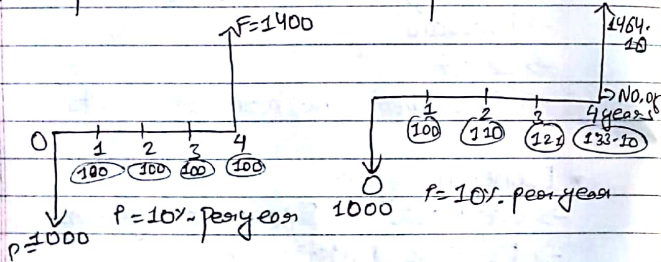 F=1400
0 1 2 3 4
100 100 100 100
P=1000
i=10%. per year
1464.10
→No. of years
1 2 3 4
100 110 121 133.10
0
1000
i=10%. per year